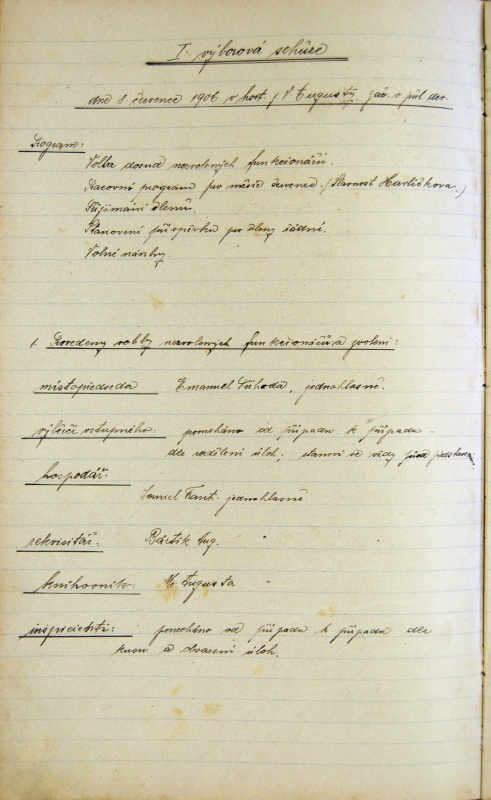 I. výborová schůze
dne 8. července 1906 v host. p. V. Augusty. zač. v půl dev.
Program:
Volba dosud nezvolených funkcionářů.
Pracovní program pro měsíc červenec. (Slavnost Havlíčkova.)
Přijímání členů.
Stanovení příspěvku pro členy řádné.
Volné návrhy
1. Provedeny volby nezvolených funkcionářů a zvoleni:
místopředseda Emanuel Příhoda, jednohlasně.
výběrčí vstupného: ponecháno od případu k případu -
dle rozdělení úloh; stanoví se vždy před představ.
hospodář:
Daniel Fant. jednohlasně
rekvisitář. Bártík Aug. "
knihovník: V. Augusta "
inspicienti: ponecháno od případu k případu dle
kusu a obsazení úloh.